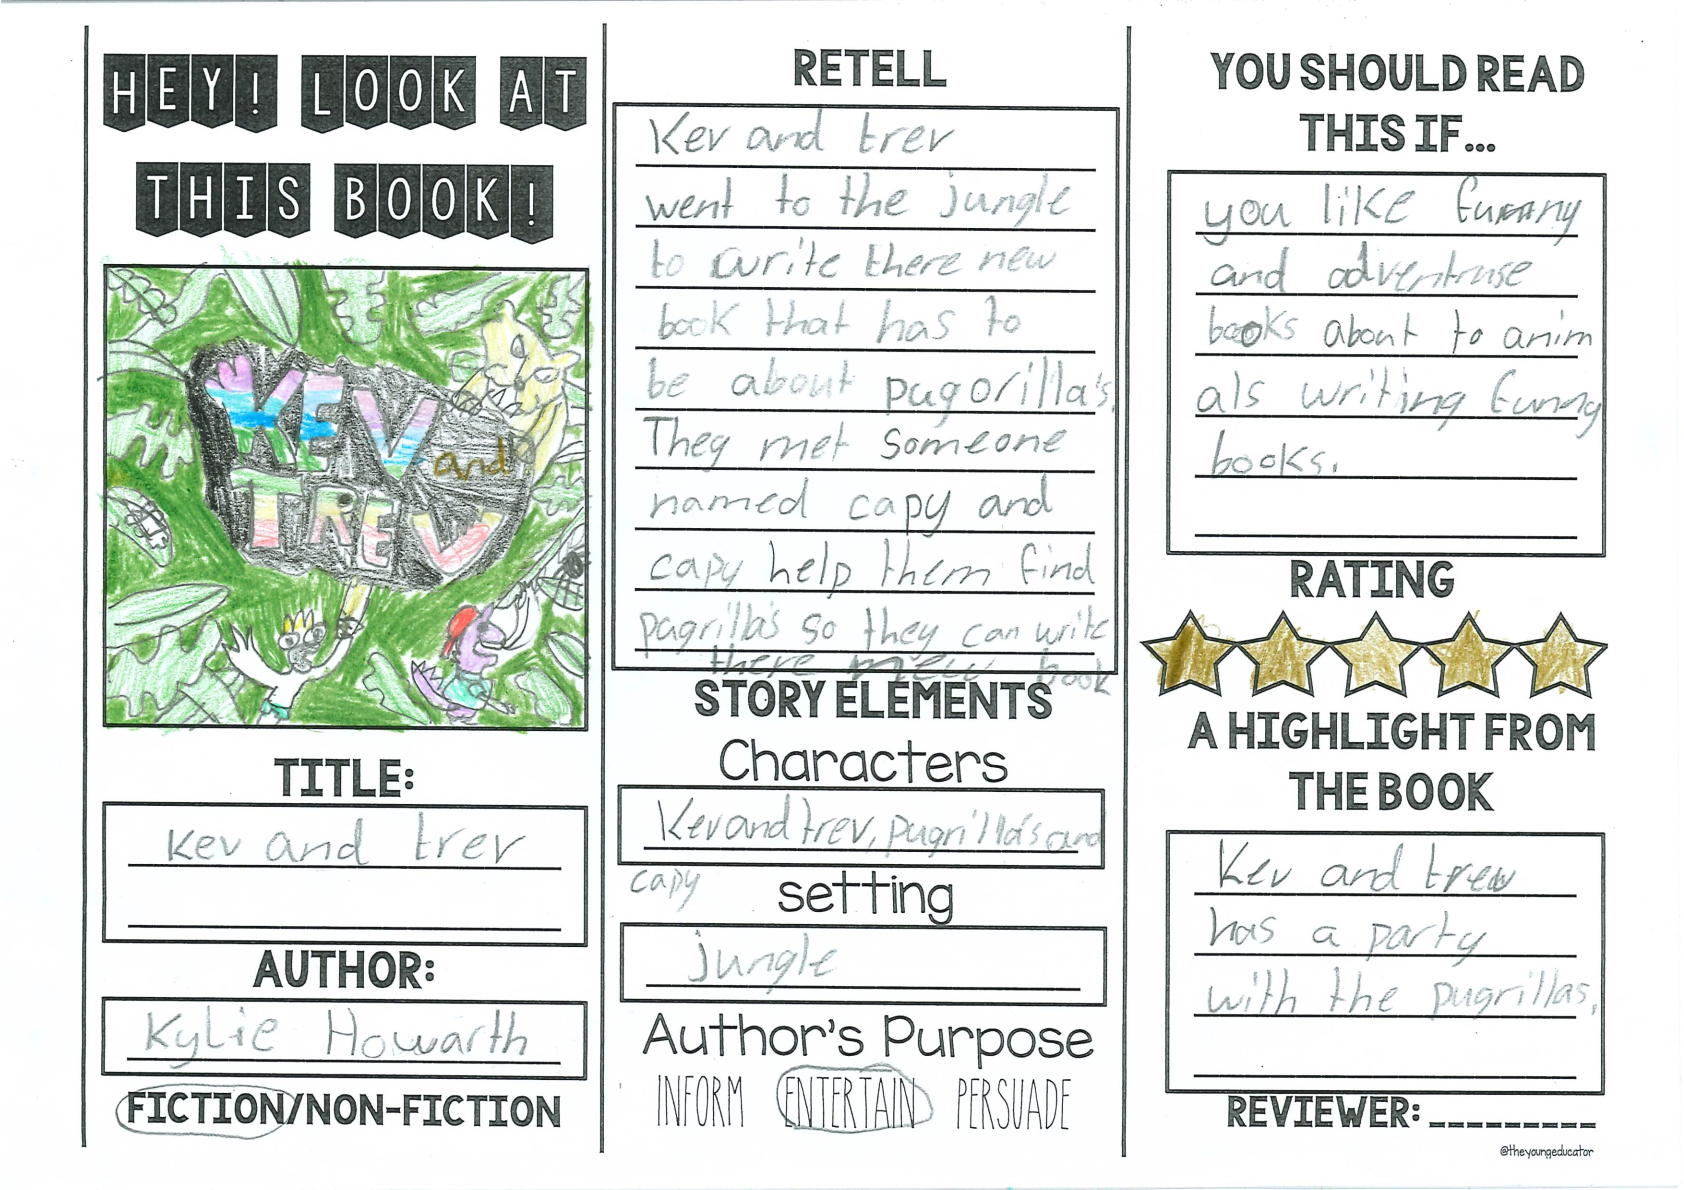 HEY! LOOK AT
THIS BOOK!
KEV
and
TREV
TITLE:
Kev and trev
AUTHOR:
Kylie Howarth
FICTION/NON-FICTION
RETELL
Kev and trev
went to the jungle
to write there new
book that has to
be about pugorilla's.
They met someone
named capy and
capy help them find
pugrilla's so they can write
there mew book
STORY ELEMENTS
Characters
Kev and trev, pugrilla's and
capy
setting
jungle
Author's Purpose
INFORM ENTERTAIN PERSUADE
YOU SHOULD READ
THIS IF...
you like funny
and adventruse
books about to anim
als writing funny
books.
RATING
A HIGHLIGHT FROM
THE BOOK
Kev and trev
has a party
with the pugrillas.
REVIEWER: _________
@theyoungeducator